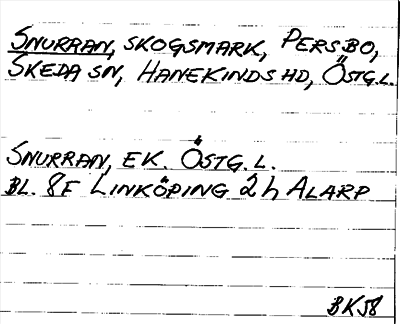 SNURRAN, SKOGSMARK, PERSBO,
SKEDA SN, HANEKINDS HD, ÖSTG.L.
SNURRAN, EK. ÖSTG.L.
BL. 8F LINKÖPING 2 h ALARP
BK58